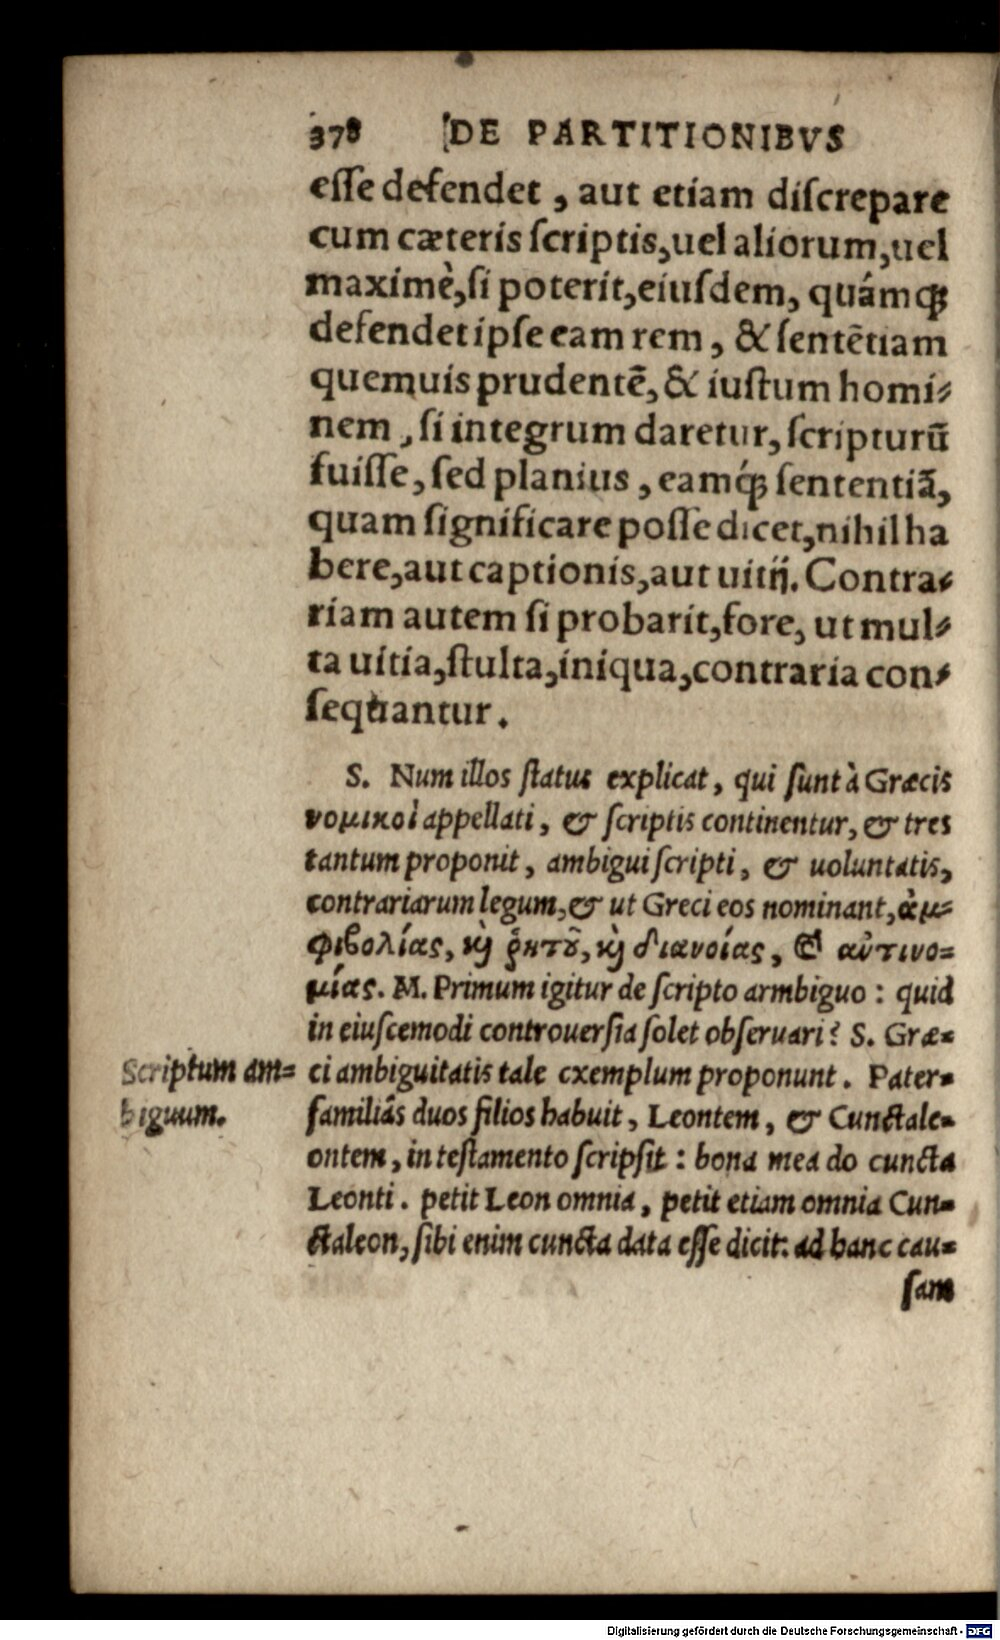 378 DE PARTITIONIBVS
esse defendet, aut etiam discrepare
cum cæteris scriptis, uel aliorum, uel
maximè, si poterit, eiusdem, quámq́ꝫ
defendet ipse eam rem, & sentētiam
quemuis prudentē, & iustum homi-
nem, si integrum daretur, scripturū
fuisse, sed planius, eamq́ꝫ sententiā,
quam significare posse dicet, nihil ha
bere, aut captionis, aut uitij. Contra-
riam autem si probarit, fore, ut mul-
ta uitia, stulta, iniqua, contraria con-
sequantur.
S. Num illos status explicat, qui sunt à Græcis
νομικοὶ appellati, & scriptis continentur, & tres
tantum proponit, ambigui scripti, & uoluntatis,
contrariarum legum, & ut Greci eos nominant, ἀμ-
φιβολίας, κỳ ῥητοῦ, κỳ διανοίας, & αὐτινο-
μίας. M. Primum igitur de scripto armbiguo: quid
in eiuscemodi controuersia solet obseruari? S. Græ-
Scriptum am-
biguum.
ci ambiguitatis tale exemplum proponunt. Pater-
familiâs duos filios habuit, Leontem, & Cunctale-
ontem, in testamento scripsit: bona mea do cuncta
Leonti. petit Leon omnia, petit etiam omnia Cun-
ctaleon, sibi enim cuncta data esse dicit: ad hanc cau-
sam
Digitalisierung gefördert durch die Deutsche Forschungsgemeinschaft - DFG